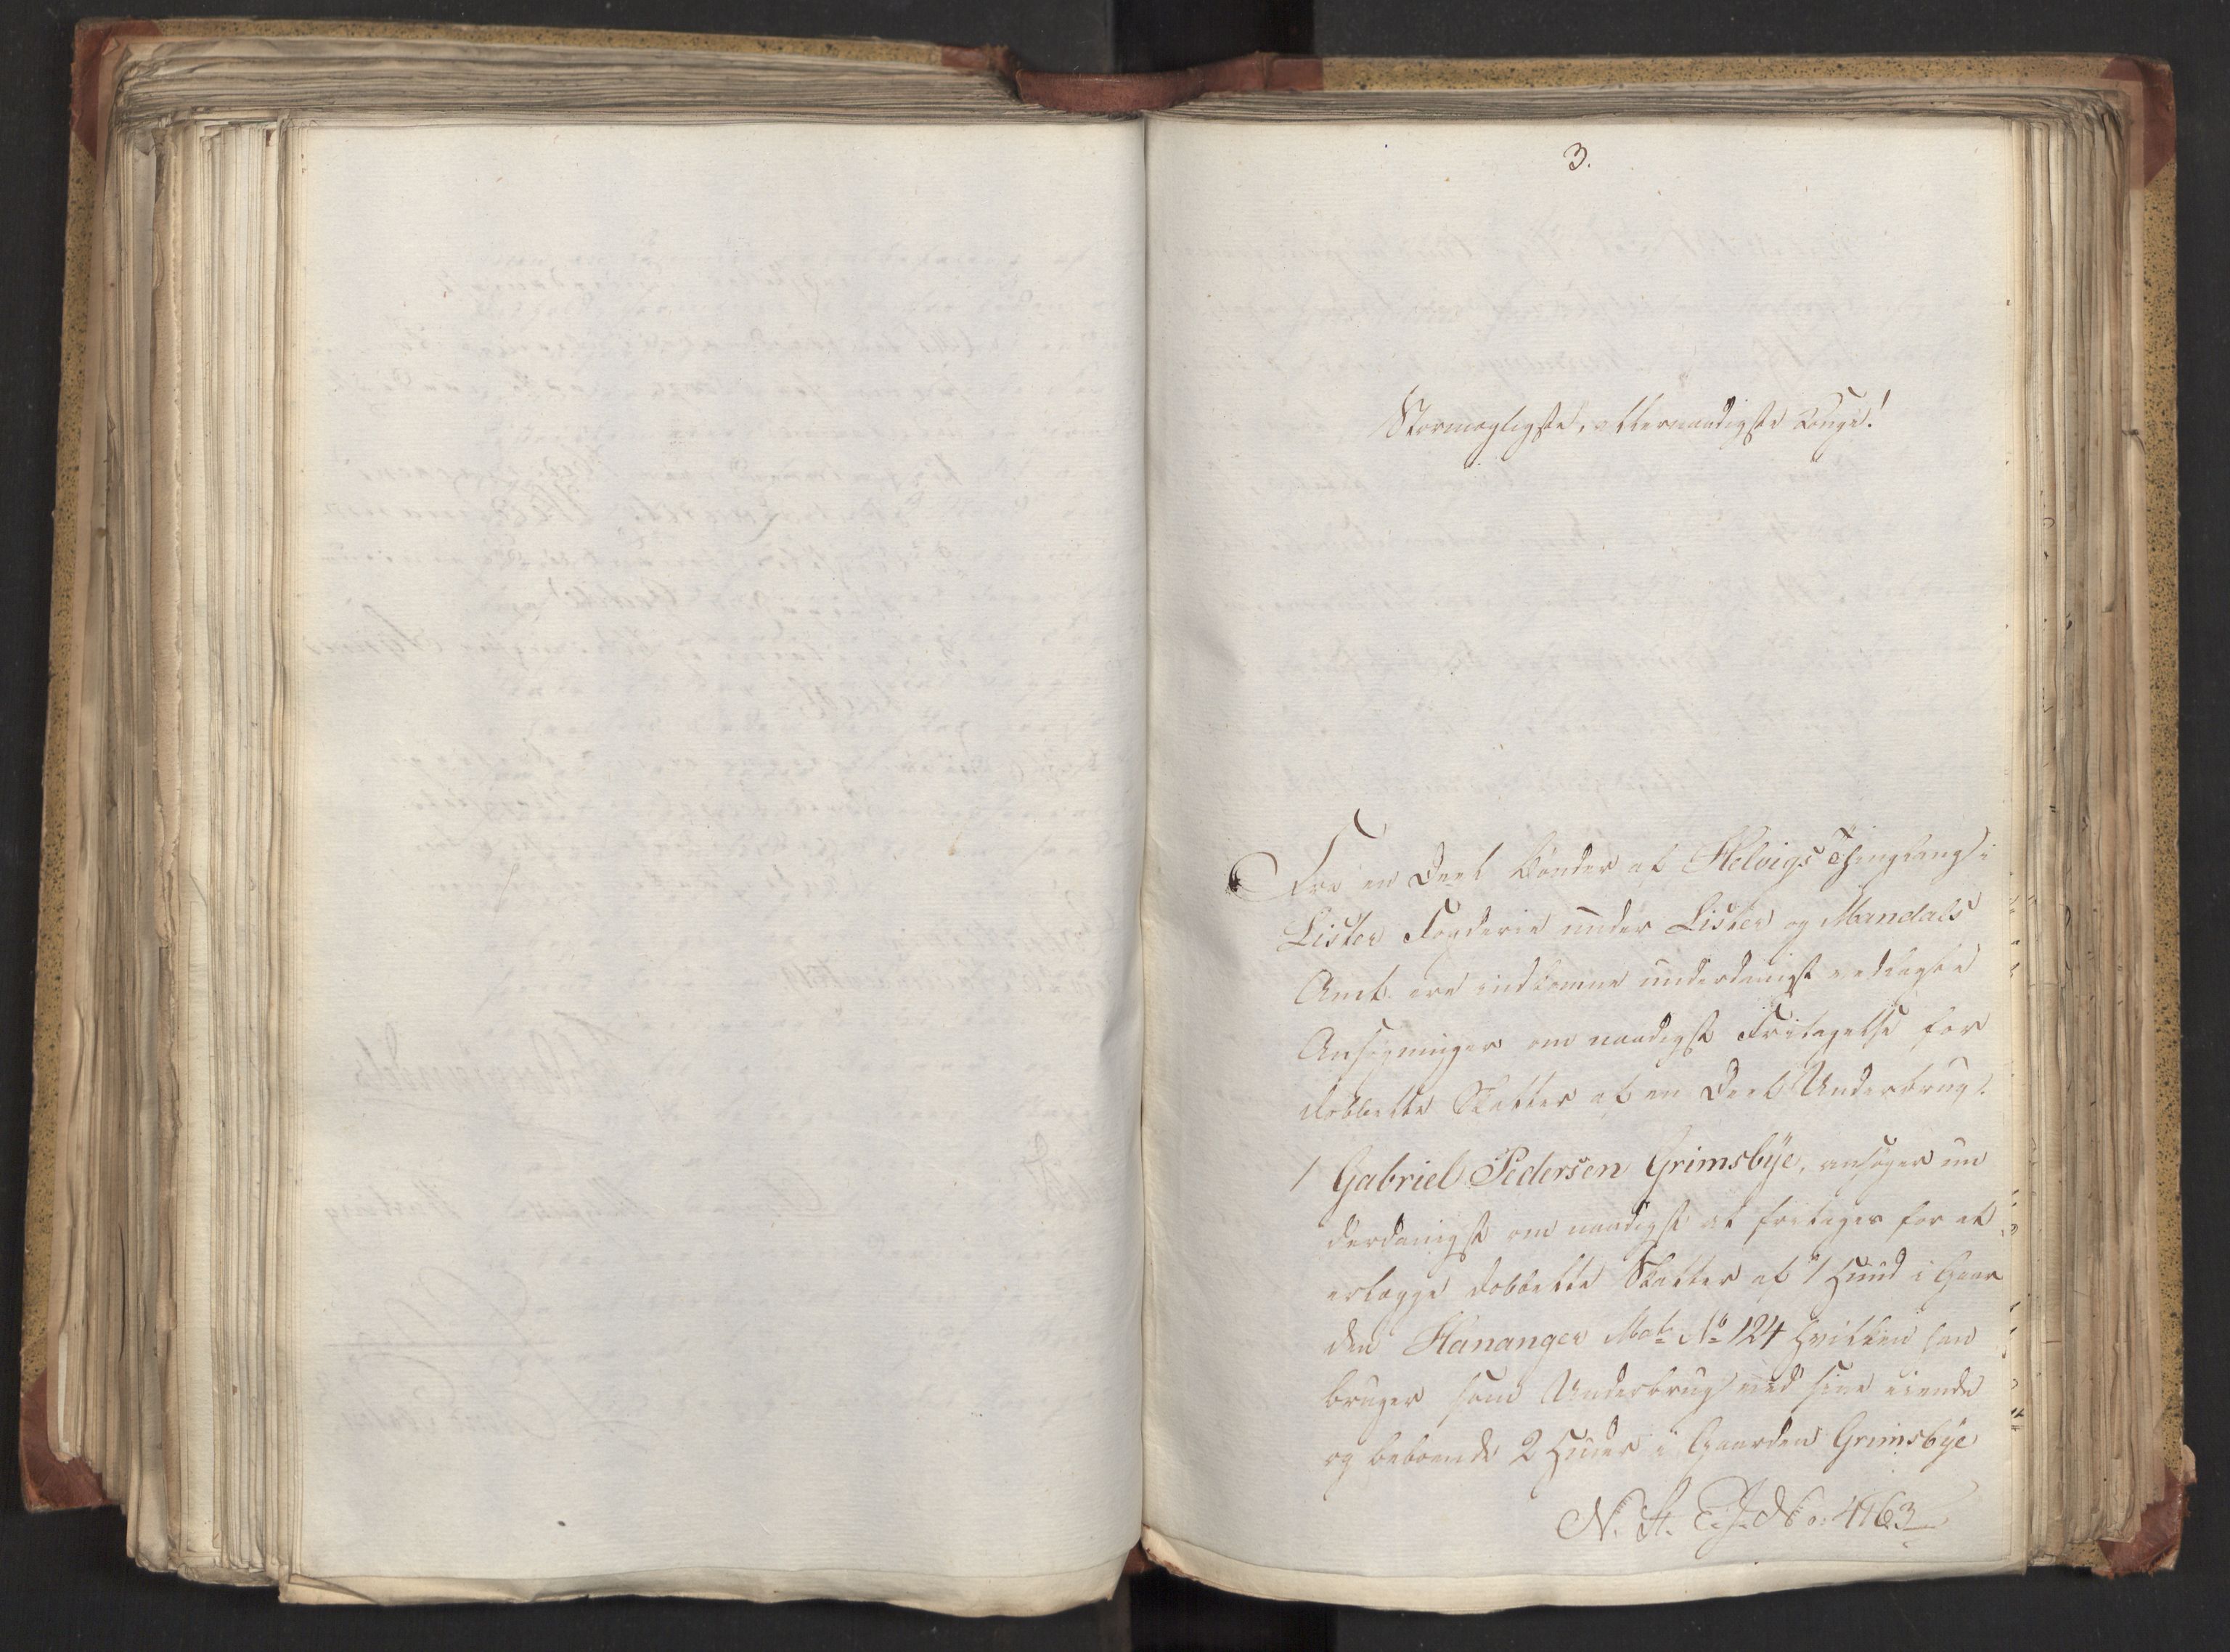 3.
Stormægtigste, allernaadigste Konge!
Fra en Deel Bønder af Helvigs Thinglaug i
Lister Fogderie under Lister og Mandals
Amt ere indkomne underdanigst vedlagde
Ansøgninger om naadigst Fritagelse for
dobbelte Skatter af en Deel Underbrug.
1 Gabriel Pedersen Grimsbye, ansøger un
derdanigst om naadigst at fritages for at
erlægge dobbelte Skatter af 1 Huud i Gaar
den Hananger Mat. No 124 hvilken han
bruger som Underbrug med sine eiende
og beboende 2 Huder i Gaarden Grimsbye
N. A. E. J. No: 4763